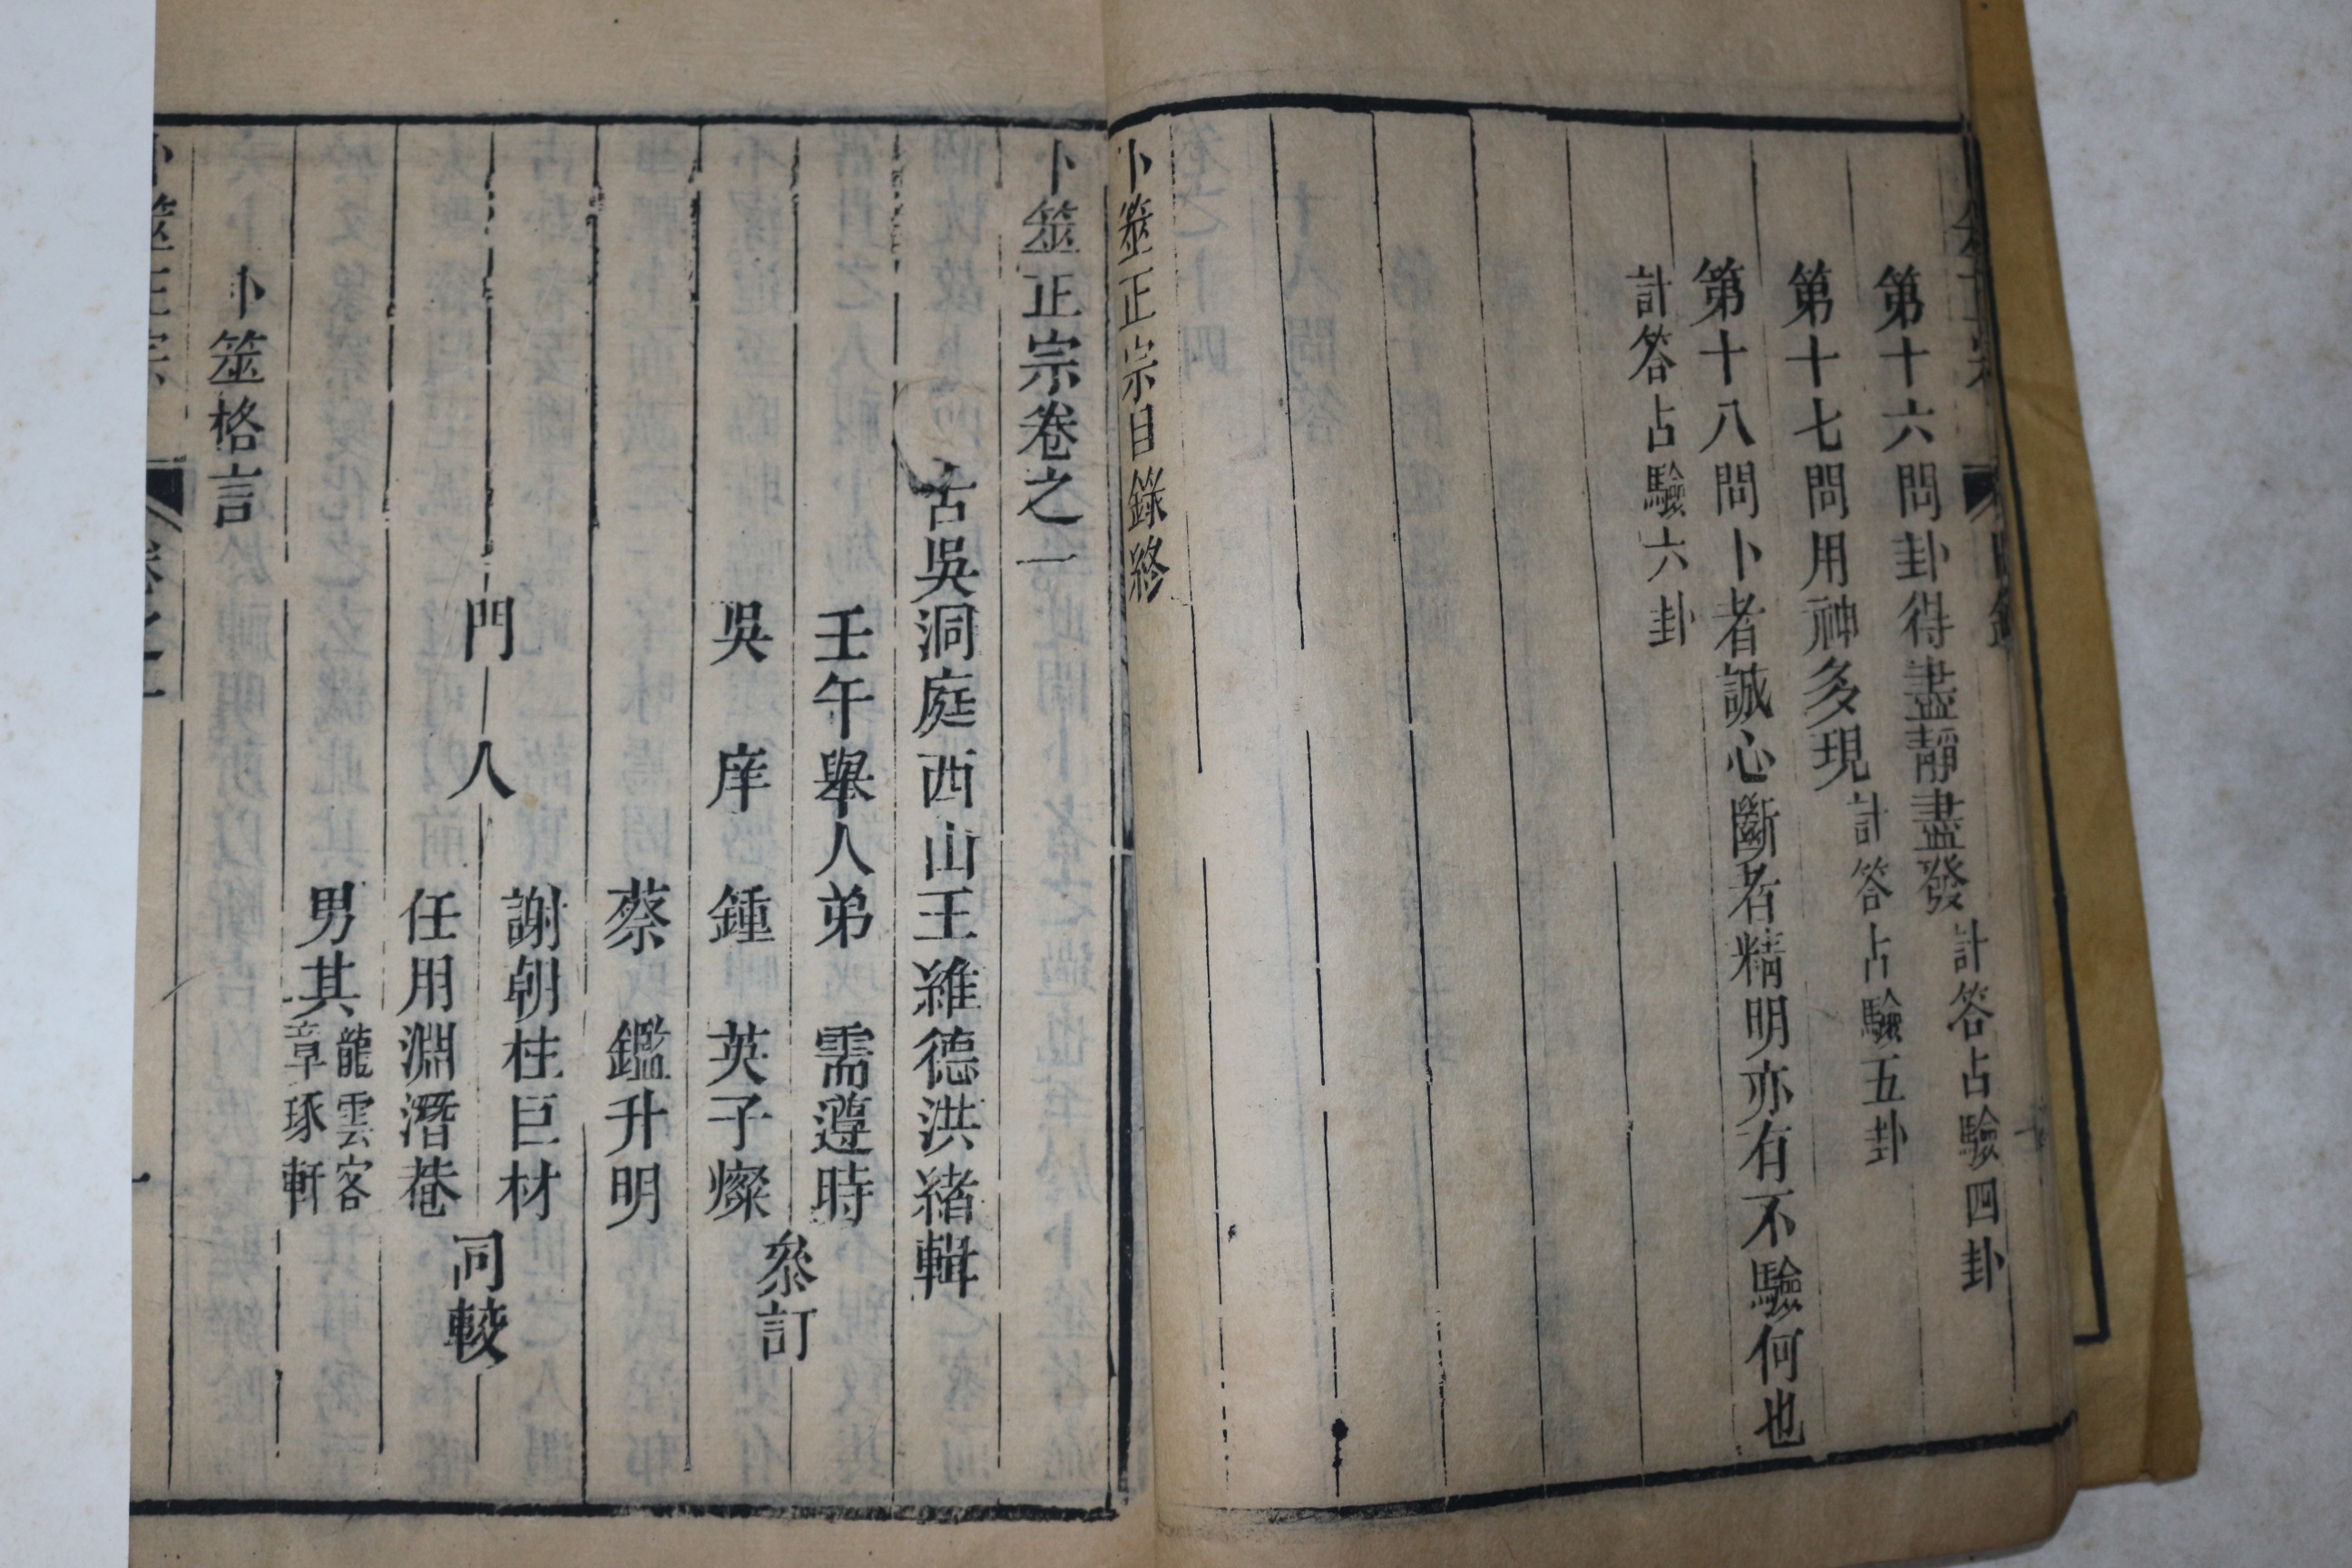 第十六問卦得盡靜盡發計答占驗四卦
第十七問用神多現計答占驗五卦
第十八問卜者誠心斷者精明亦有不驗何也
計答占驗六卦
卜筮正宗目錄終
卜筮正宗卷之一
古吳洞庭西山王維德洪緒輯
壬午舉人弟需遵時
吳庠鍾英子燦
參訂
蔡鑑升明
門人
謝朝柱巨材
任用淵潛菴
同較
男其龍雲客
章琢軒
卜筮格言
卜筮正宗
卷之一